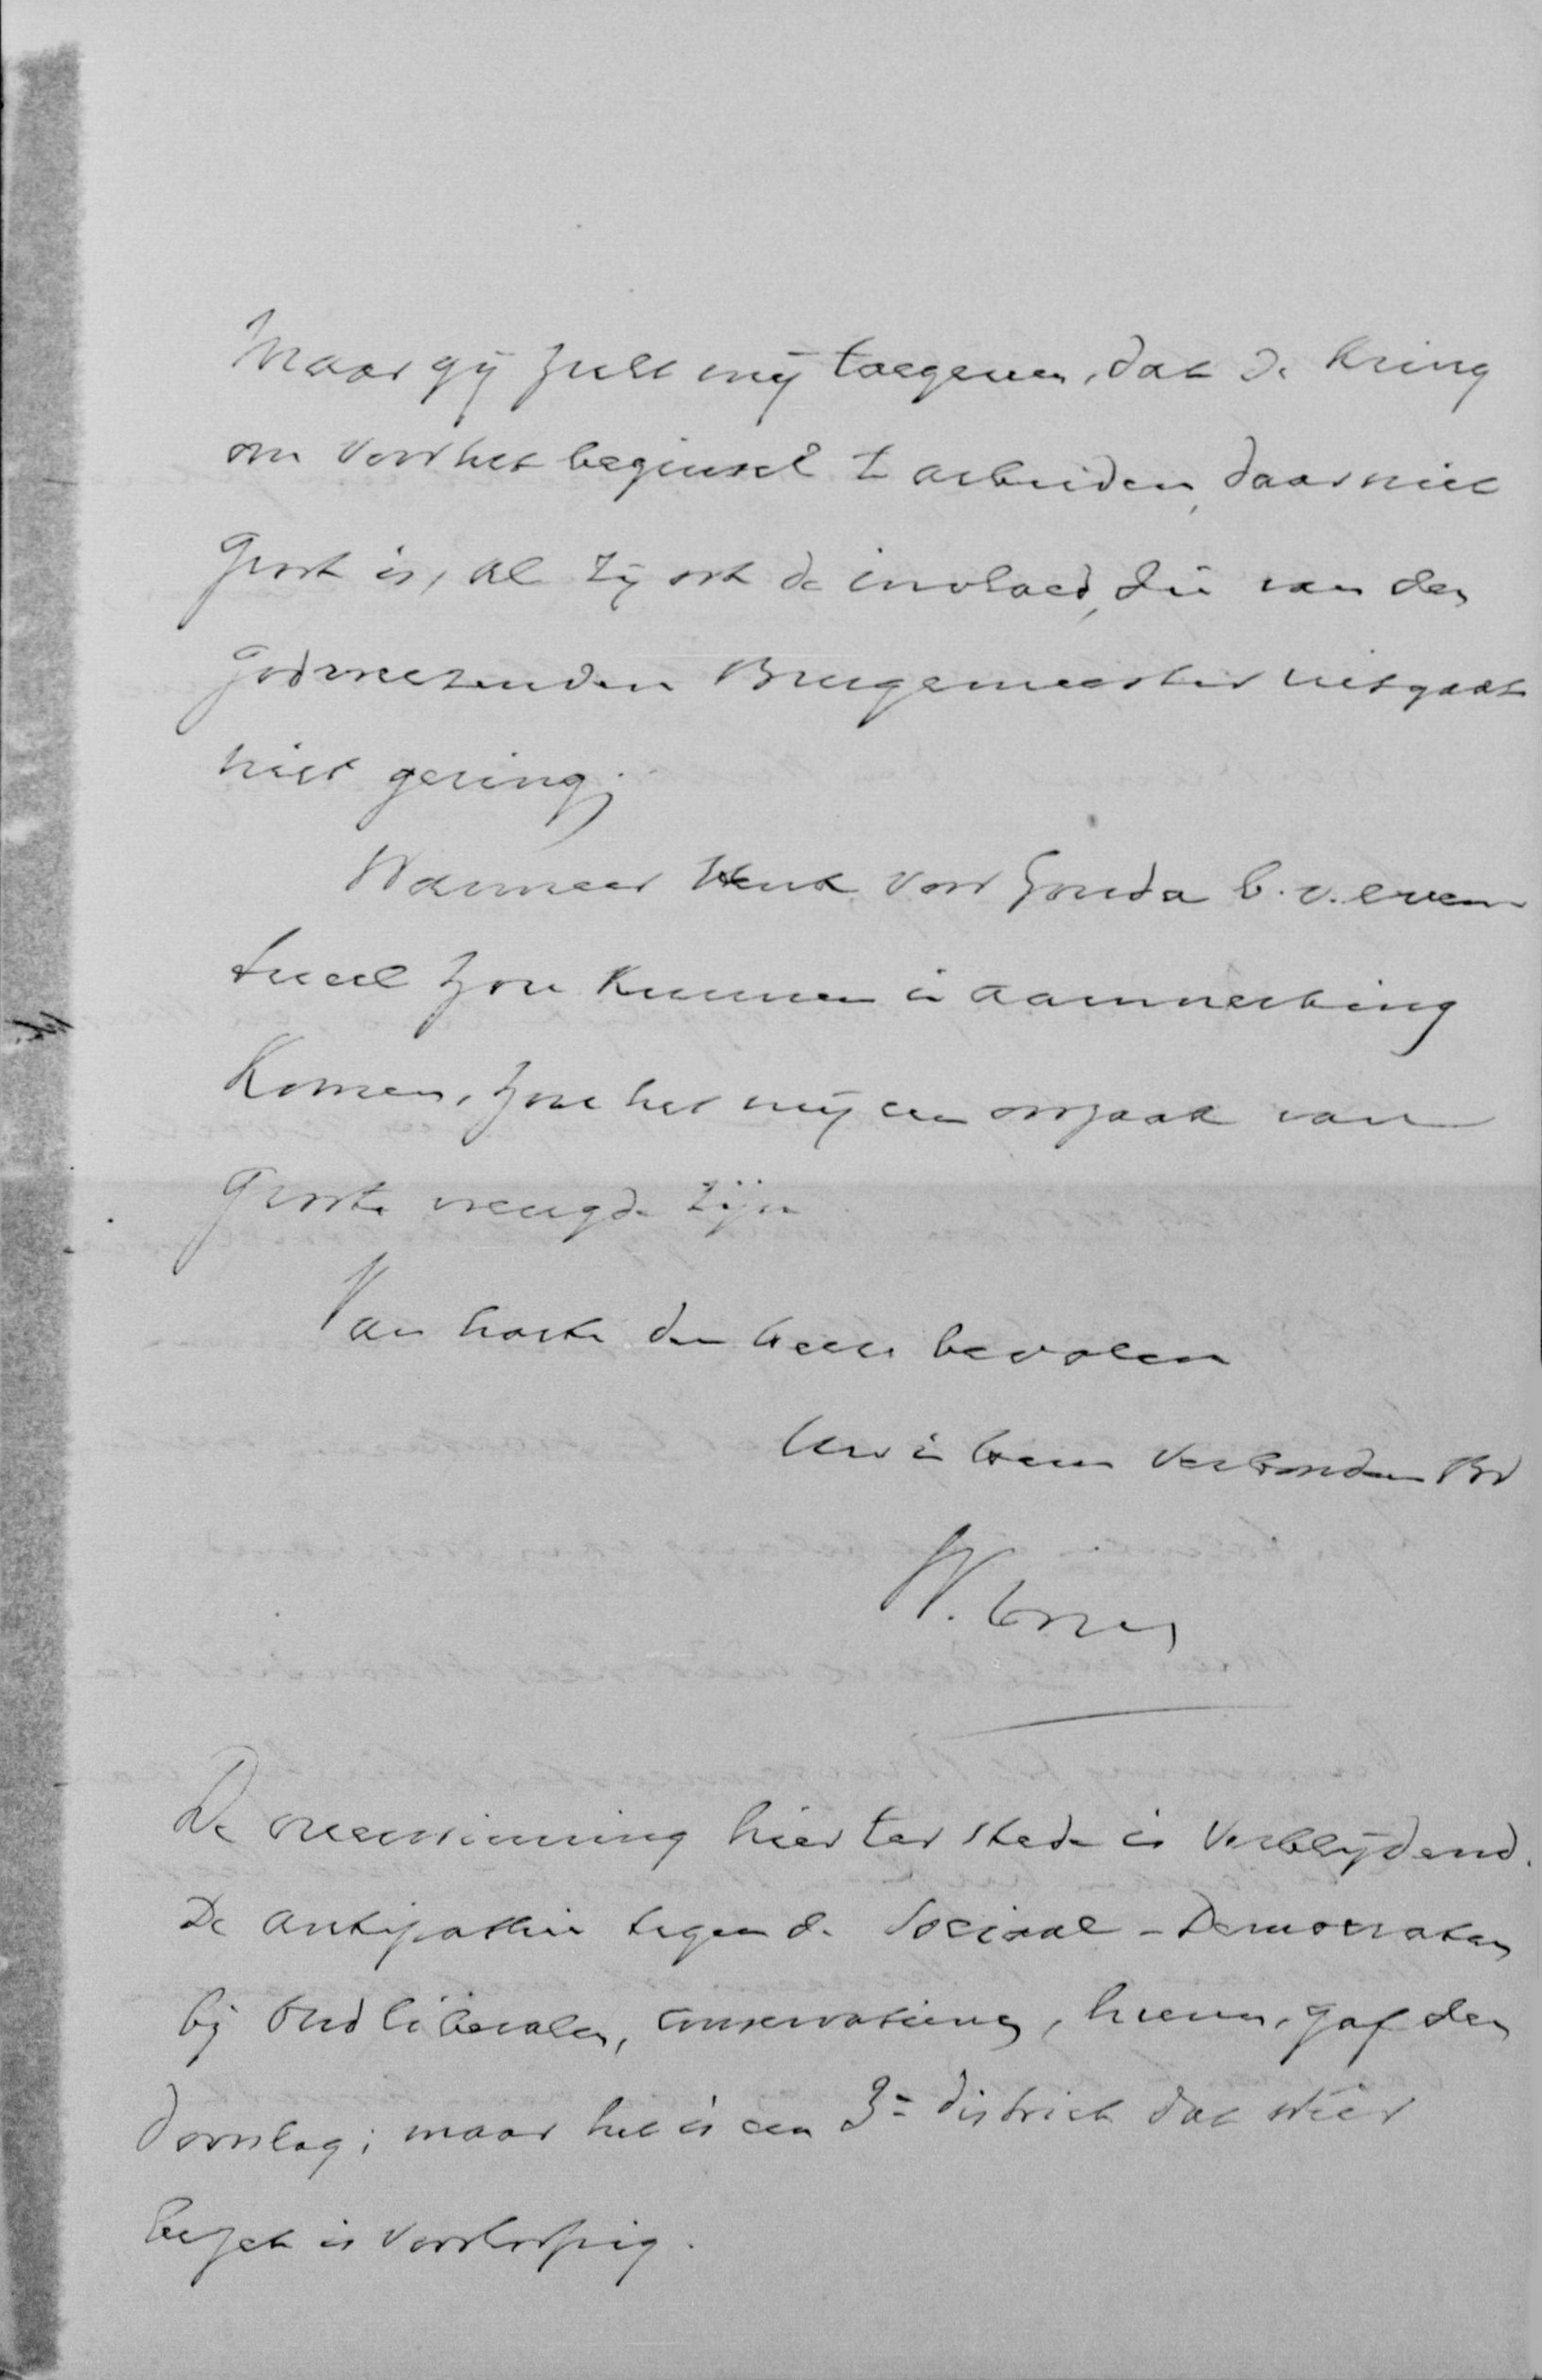 Maar gij zult mij toegeven, dat de kring
om voor het beginsel te arbeiden, daar niet
groot is, al zij ook de invloed, die van den
godvreezenden Burgemeester uitgaat
niet gering;
Wanneer Henk voor Gouda b.v. even-
tueel zou kunnen in aanmerking
komen, zou het mij een oorzaak van
groote vreugde zijn
Van harte den Heere bevolen
Uw in Hem verbonden Br
W.
De overwinning hier ter stede is verblijdend.
De antipathie tegen de Sociaal-Democraten
bij Oud liberalen, conservatieven, gaf den
doorslag; maar het is een 3e district dat weer
bezet is voorloopig.